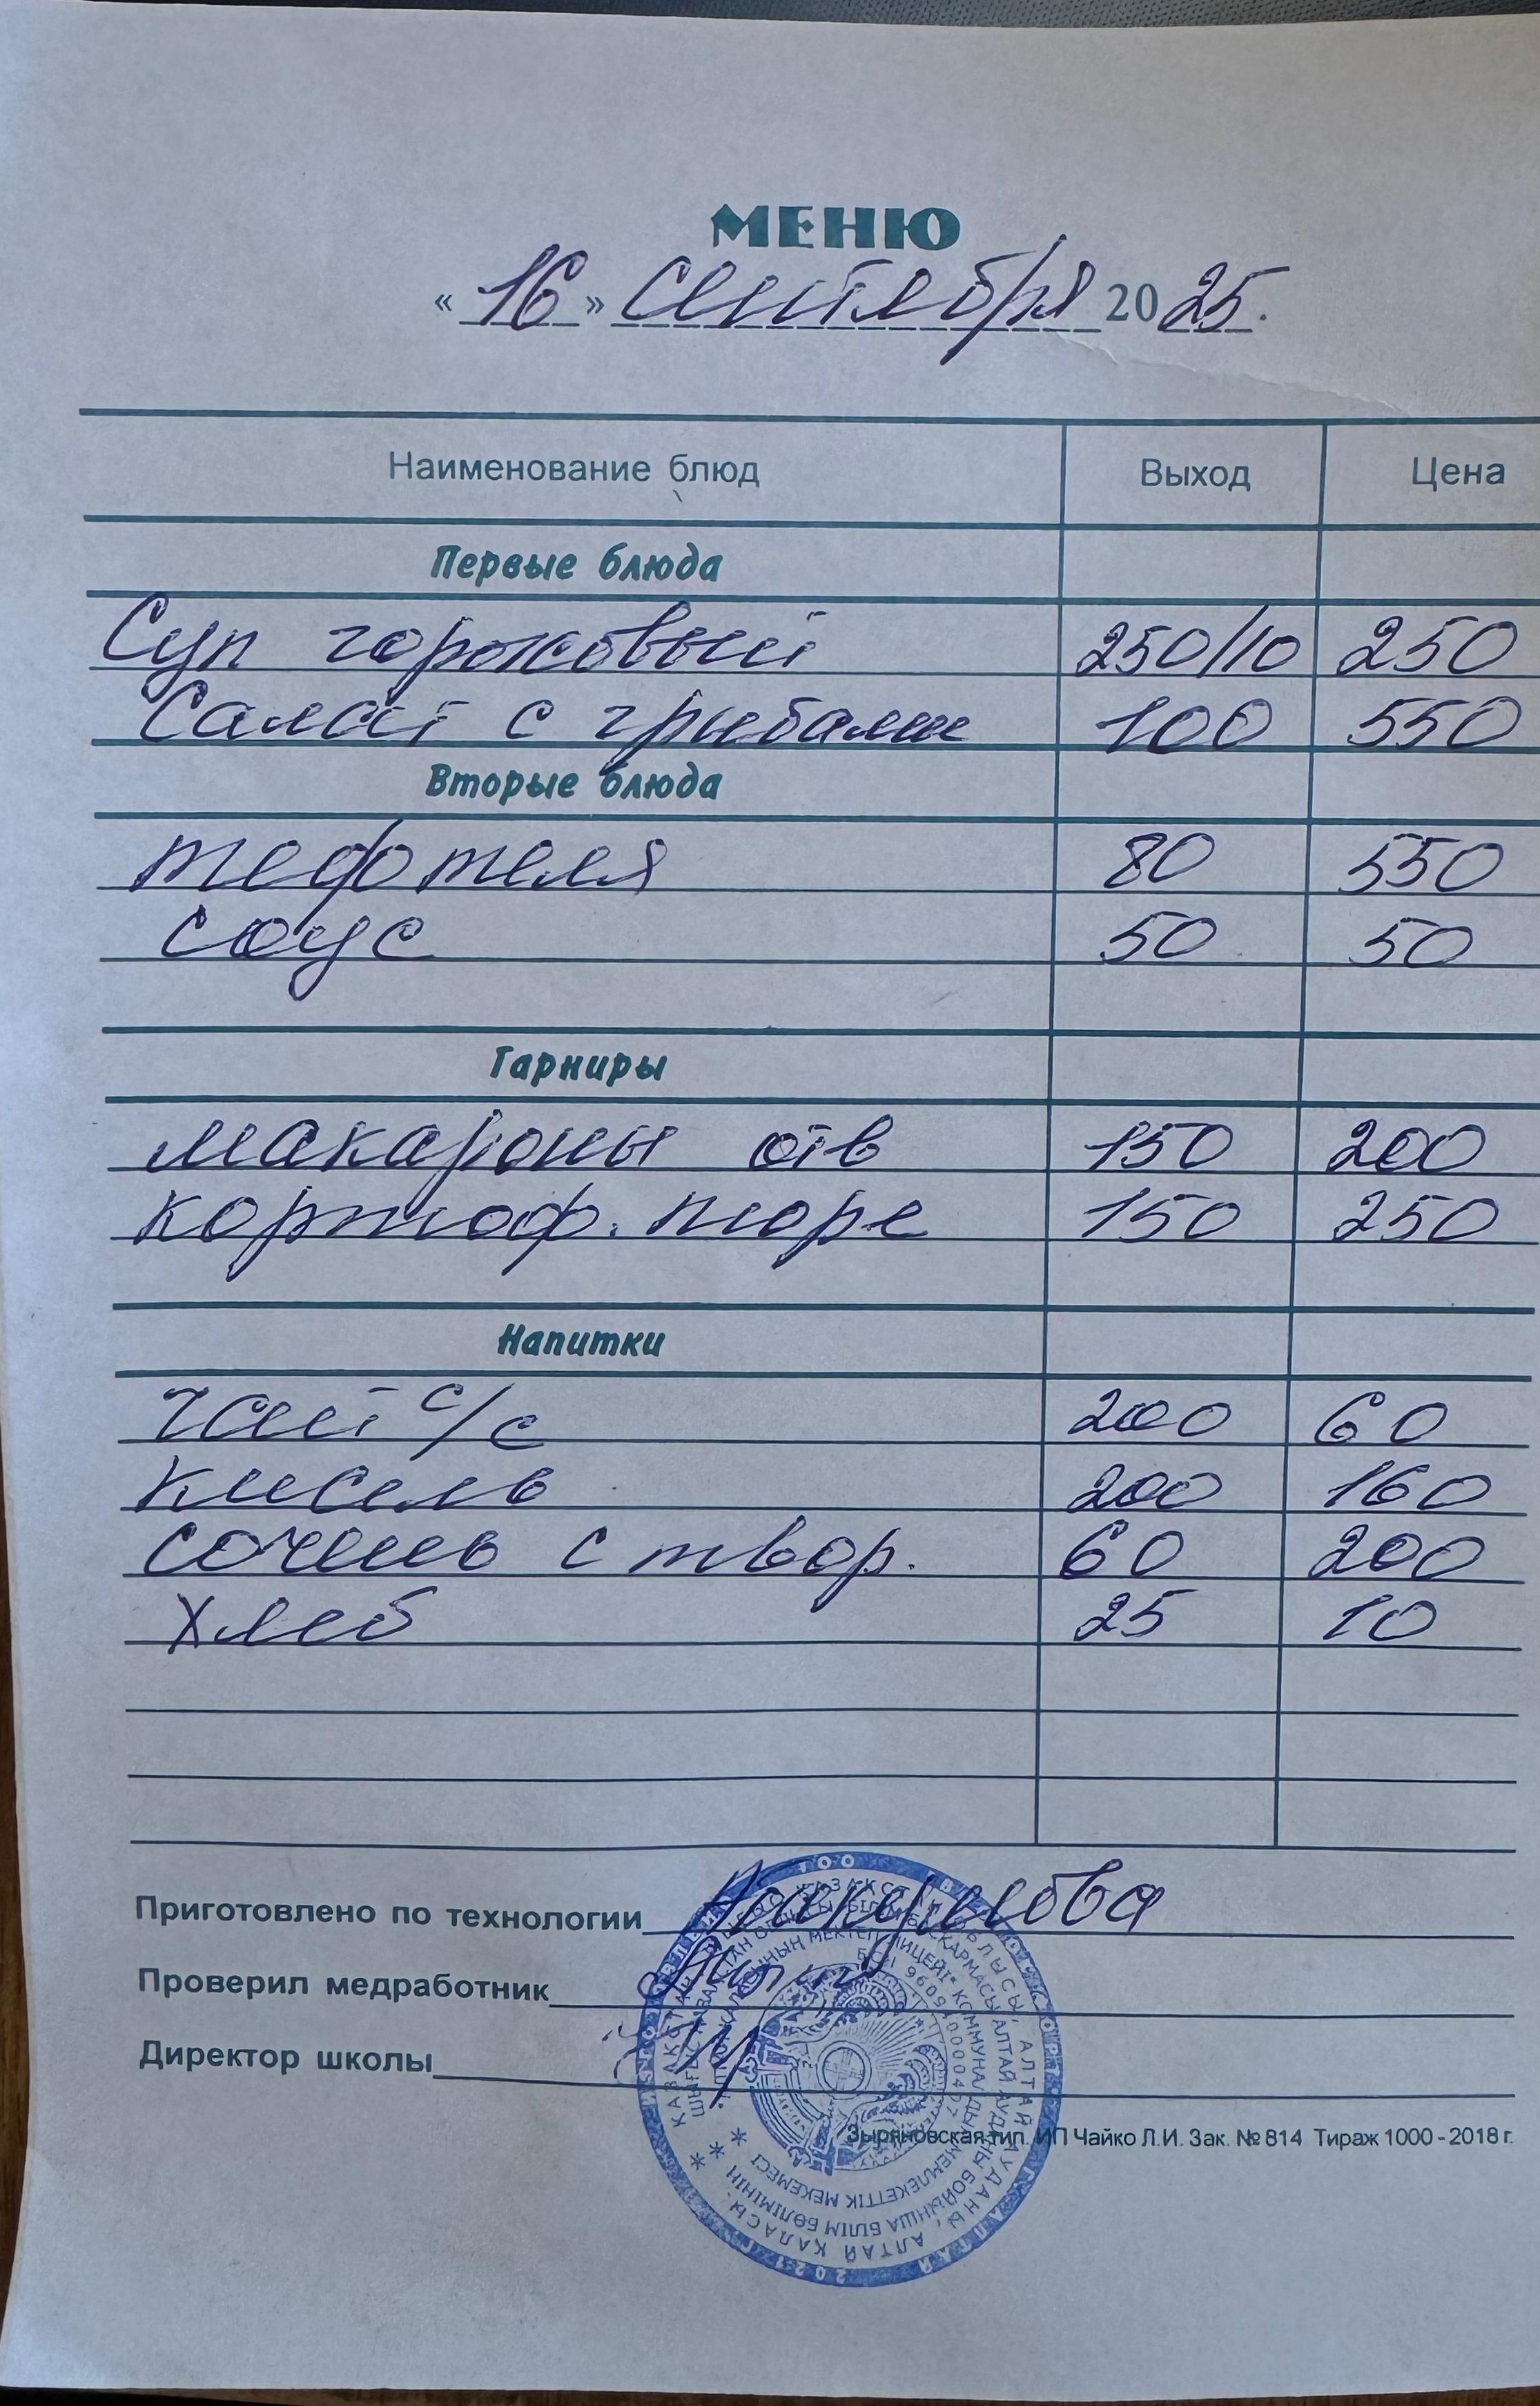 МЕНЮ
« 16 » сентября 20 25.
Наименование блюд Выход Цена
Первые блюда
Суп гороховый 250/10 250
Салат с грибами 100 550
Вторые блюда
тефтеля 80 550
соус 50 50
Гарниры
макароны отв 150 200
картоф. пюре 150 250
Напитки
чай с/с 200 60
кисель 200 160
сочень с твор. 60 200
хлеб 25 10
Приготовлено по технологии
Проверил медработник
Директор школы
Зыряновская тип. ИП Чайко Л.И. Зак. № 814 Тираж 1000 - 2018 г.